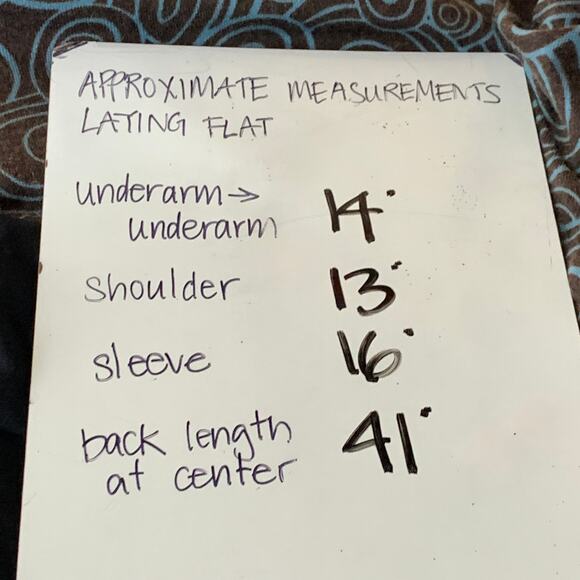 APPROXIMATE MEASUREMENTS
LAYING FLAT
underarm →
underarm 14"
shoulder 13"
sleeve 16"
back length
at center 41"